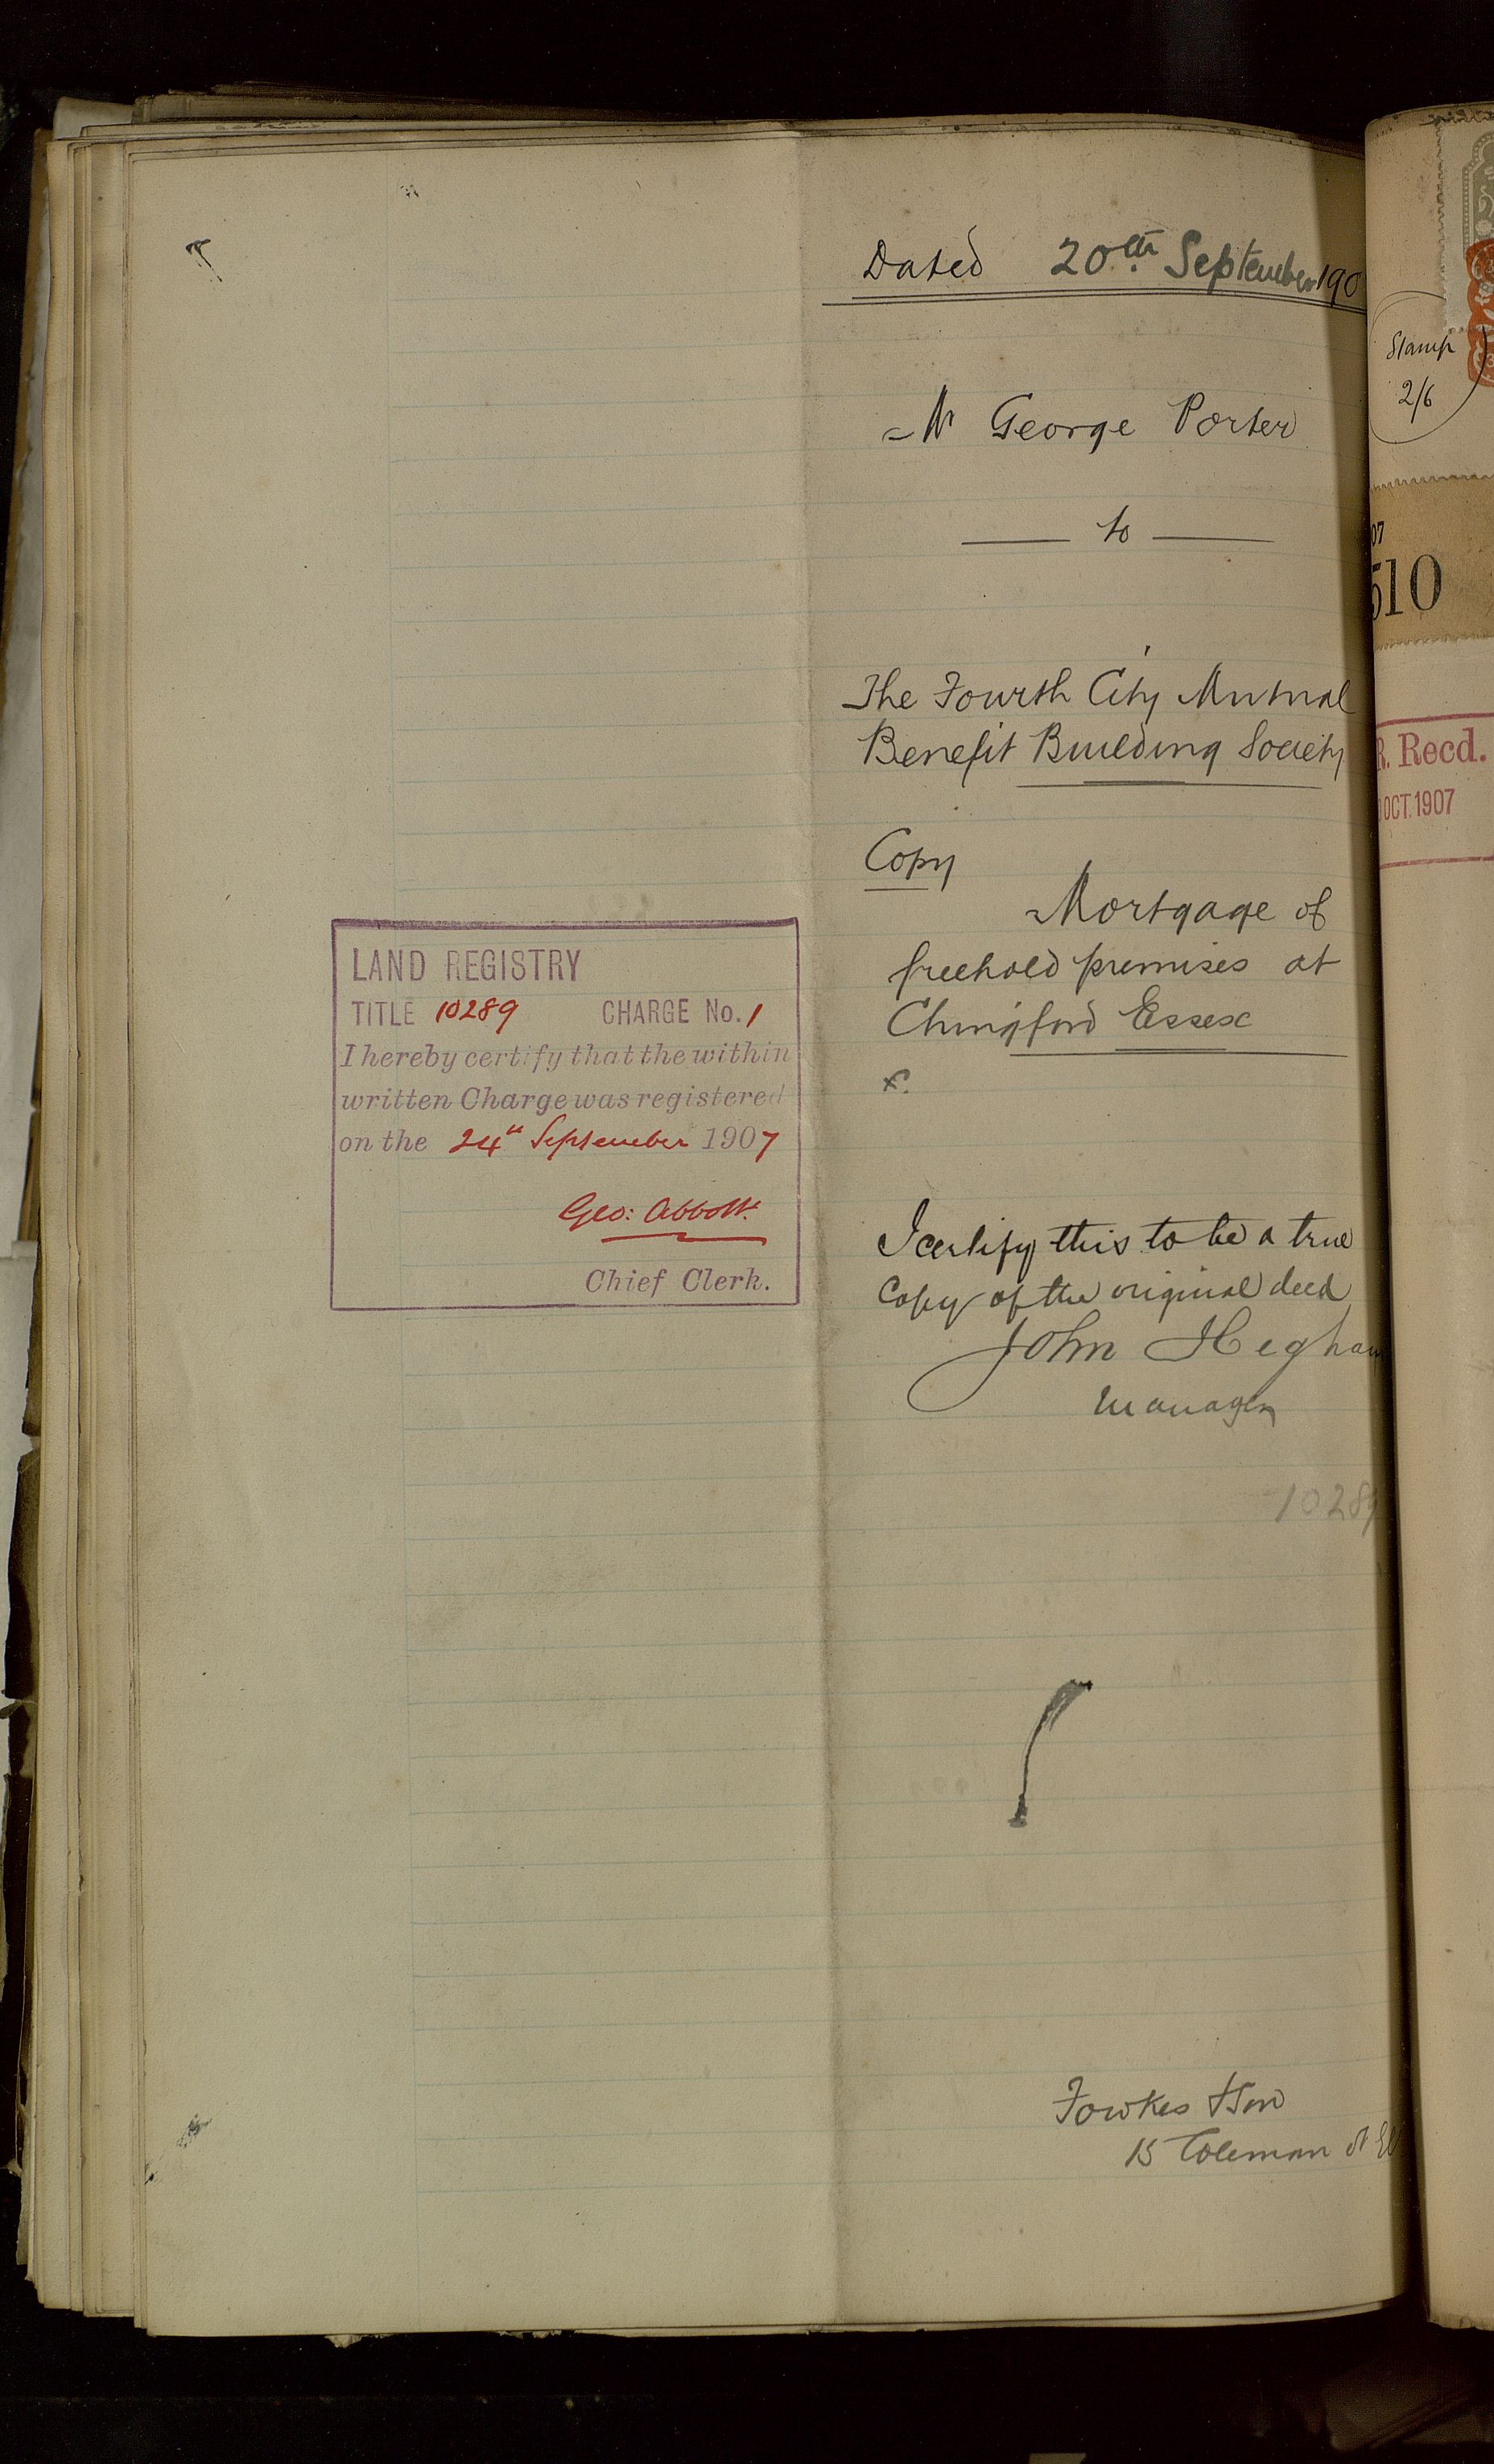 Dated 20th September 190
Mr George Porter
to
The Fourth City Mutual
Benefit Building Society
Copy
Mortgage of
freehold premises at
Chingford Essex
I certify this to be a true
Copy of the original deed
John Higham
Manager
10289
Fowkes & Son
15 Coleman St
LAND REGISTRY
TITLE 10289 CHARGE No. 1
I hereby certify that the within
written Charge was registered
on the 24th September 1907
Geo: Abbott.
Chief Clerk.
Stamp
2/6
07
510
R. Recd.
OCT. 1907